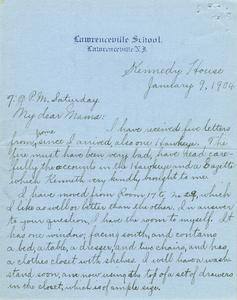 Lawrenceville School.
Lawrenceville N.J.
Kennedy House
January 9, 1904
7:0 P.M. Saturday
My dear Mama:
I have received five letters
from you since I arrived, also one Hawkeye. The
fire must have been very bad, have read care-
fully the accounts in the Hawkeye and a Gazette
which Kenneth very kindly brought to me.
I have moved from Room 17 to no. 29, which
I like as well or better than the other. In answer
to your question, I have the room to myself. It
has one window, facing south, and contains
a bed, a table, a dresser, and two chairs, and has
a clothes closet with shelves. I will have a wash
stand soon, am now using the top of a set of drawers
in the closet, which is of ample size.